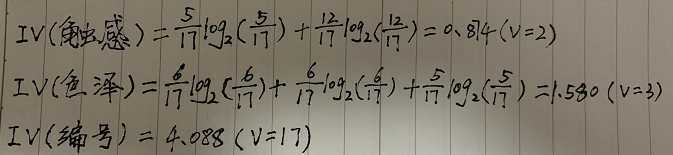 IV(触感) = 5/17 log₂(5/17) + 12/17 log₂(12/17) = 0.874 (V=2)
IV(色泽) = 6/17 log₂(6/17) + 6/17 log₂(6/17) + 5/17 log₂(5/17) = 1.580 (V=3)
IV(编号) = 4.088 (V=17)